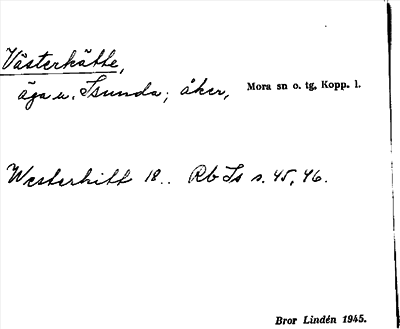 Västerkätte,
äga u. Isunda; åker, Mora sn o. tg, Kopp. l.
Westerkitt 18.. Rb Is s. 45, 46.
Bror Lindén 1945.